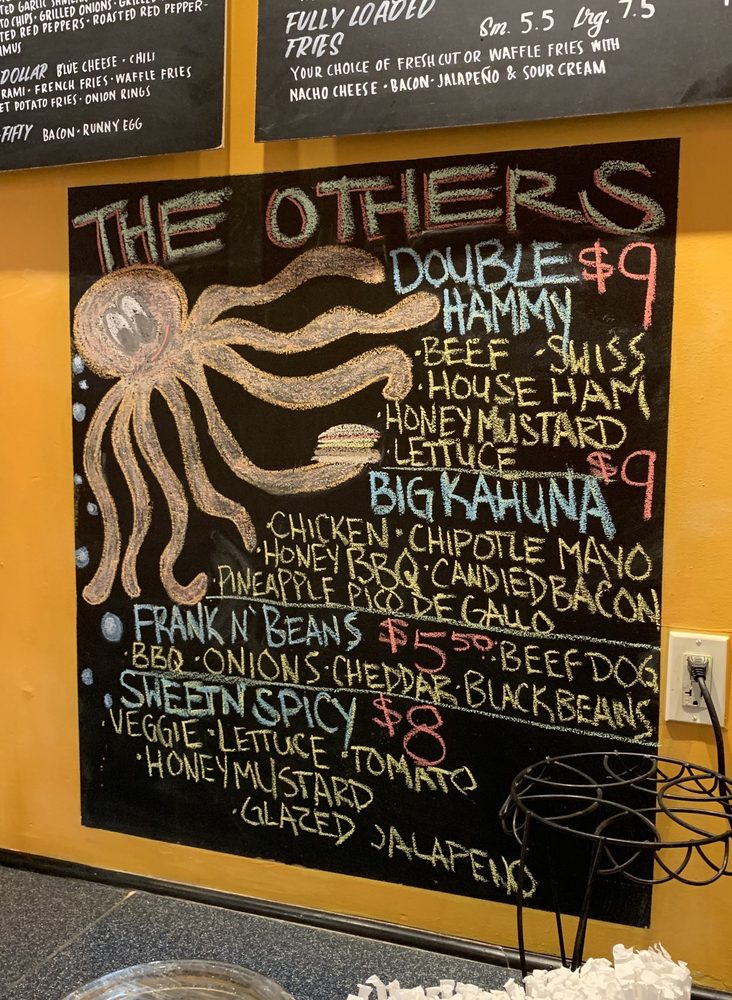 TO CHIPS · GRILLED ONIONS · GRILLED
TED RED PEPPERS · ROASTED RED PEPPER-
DOLLAR BLUE CHEESE · CHILI
RAMI · FRENCH FRIES · WAFFLE FRIES
ET POTATO FRIES · ONION RINGS
-FIFTY BACON · RUNNY EGG
FULLY LOADED
FRIES
Sm. 5.5 Lrg. 7.5
YOUR CHOICE OF FRESH CUT OR WAFFLE FRIES WITH
NACHO CHEESE · BACON · JALAPEÑO & SOUR CREAM
THE OTHERS
DOUBLE $9
HAMMY
· BEEF · SWISS
· HOUSE HAM
· HONEY MUSTARD
· LETTUCE
BIG KAHUNA $9
· CHICKEN · CHIPOTLE MAYO
· HONEY BBQ · CANDIED BACON
· PINEAPPLE PICO DE GALLO
FRANK N' BEANS $5.50 · BEEF DOG
· BBQ · ONIONS · CHEDDAR · BLACK BEANS
SWEET N' SPICY $8
· VEGGIE · LETTUCE · TOMATO
· HONEY MUSTARD
· GLAZED JALAPEÑO